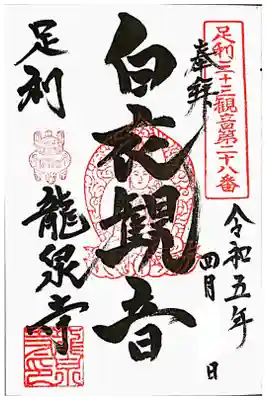 足利三十三観音第二十八番
奉拝
令和五年
四月 日
白衣観音
足利
龍泉寺